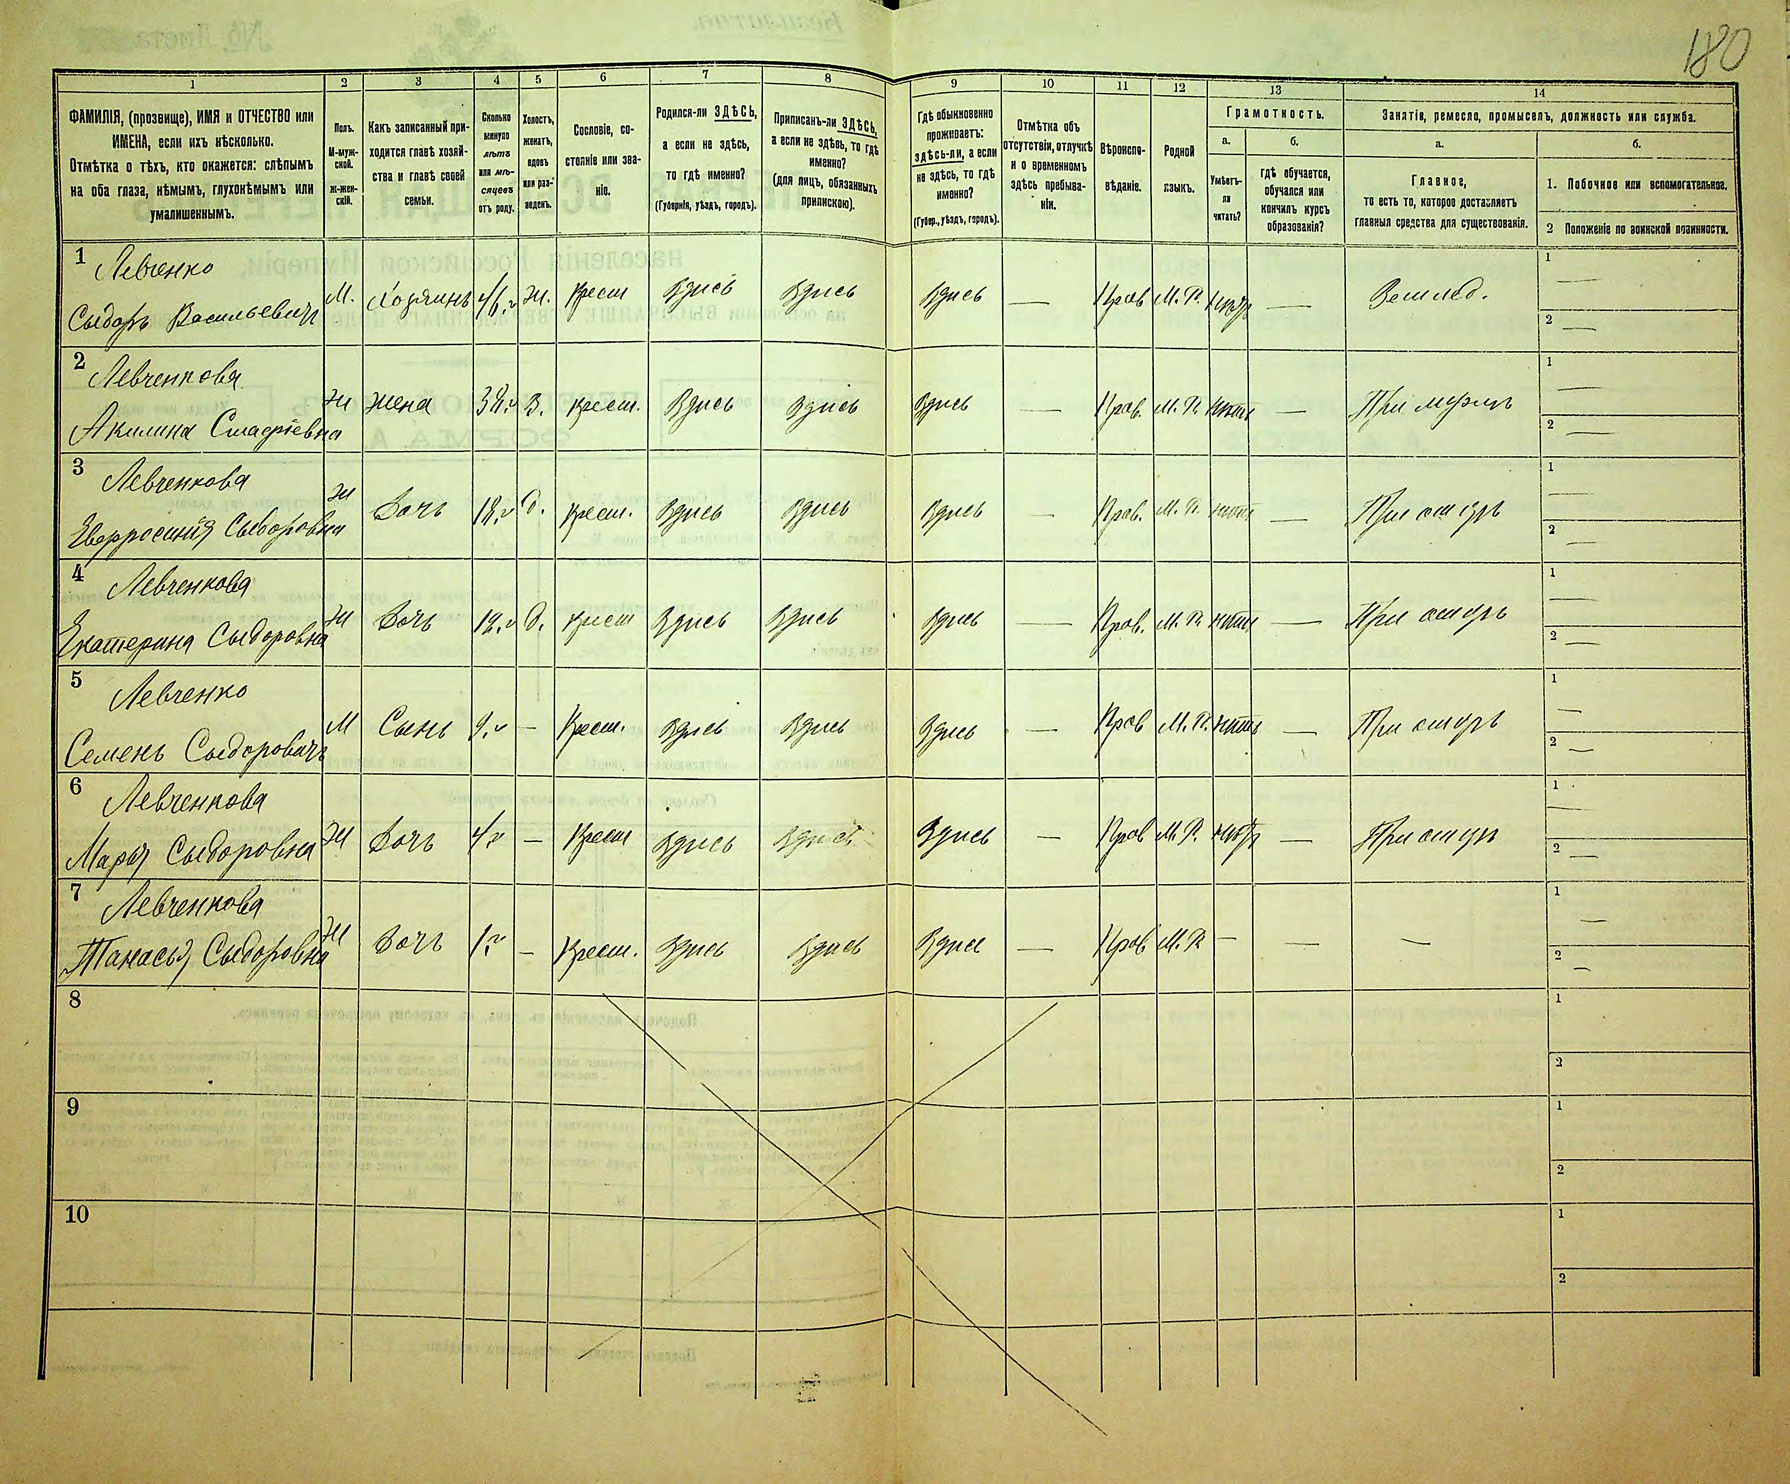 180
1
2
3
4
5
6
7
8
9
10
11
12
13
14
ФАМИЛІЯ, (прозвище), ИМЯ и ОТЧЕСТВО или
ИМЕНА, если ихъ нѣсколько.
Отмѣтка о тѣхъ, кто окажется: слѣпымъ
на оба глаза, нѣмымъ, глухонѣмымъ или
умалишеннымъ.
Полъ.
М-муж-
ской.
Ж-жен-
скій.
Какъ записанный при-
ходится главѣ хозяй-
ства и главѣ своей
семьи.
Сколько
минуло
лѣтъ
или мѣ-
сяцевъ
отъ роду.
Холостъ,
женатъ,
вдовъ
или раз-
веденъ.
Сословіе, со-
стояніе или зва-
ніе.
Родился-ли ЗДѢСЬ,
а если не здѣсь,
то гдѣ именно?
(Губернія, уѣздъ, городъ).
Приписанъ-ли ЗДѢСЬ,
а если не здѣсь, то гдѣ
именно?
(для лицъ, обязанныхъ
припискою).
Гдѣ обыкновенно
проживаетъ:
здѣсь-ли, а если
не здѣсь, то гдѣ
именно?
(Губер., уѣздъ, городъ).
Отмѣтка объ
отсутствіи, отлучкѣ
и о временномъ
здѣсь пребыва-
ніи.
Вѣроиспо-
вѣданіе.
Родной
языкъ.
Грамотность.
а.
Умѣетъ-
ли
читать?
б.
гдѣ обучается,
обучался или
кончилъ курсъ
образованія?
Занятіе, ремесло, промыселъ, должность или служба.
а.
Главное,
то есть то, которое доставляетъ
главныя средства для существованія.
б.
1. Побочное или вспомогательное.
2 Положеніе по воинской повинности.
1 Левченко
Сыдоръ Васильевичъ М. Хозяинъ ж. Крест Здись Здись Здись — Прав М. Р. — Землед. 1 — 2 —
2 Левченкова
Акилина Ж жена 38. З. крест. Здись Здись Здись — Прав. М. Р. — При мужъ 1 — 2 —
3 Левченкова
Евфросинія Сыдоровна Ж Дочь 18. д. крест. Здись Здись Здись — Прав. М. Р. — При отцуъ 1 — 2 —
4 Левченкова
Екатерина Сыдоровна Ж Дочь д. крест Здись Здись Здись — Прав. М. Р. — При отцуъ 1 — 2 —
5 Левченко
Семенъ Сыдоровичъ М Сынъ 9. — Крест. Здись Здись Здись — Прав М. Р. — При отцуъ 1 — 2 —
6 Левченкова
Марья Сыдоровна Ж Дочь 4 — Крест Здись Здись Здись — Прав М. Р. — При отцуъ 1 — 2 —
7 Левченкова
Танасья Сыдоровна Ж Дочь 1. — Крест. Здись Здись Здись — Прав М. Р. — — — 1 — 2 —
8 1 2
9 1 2
10 1 2